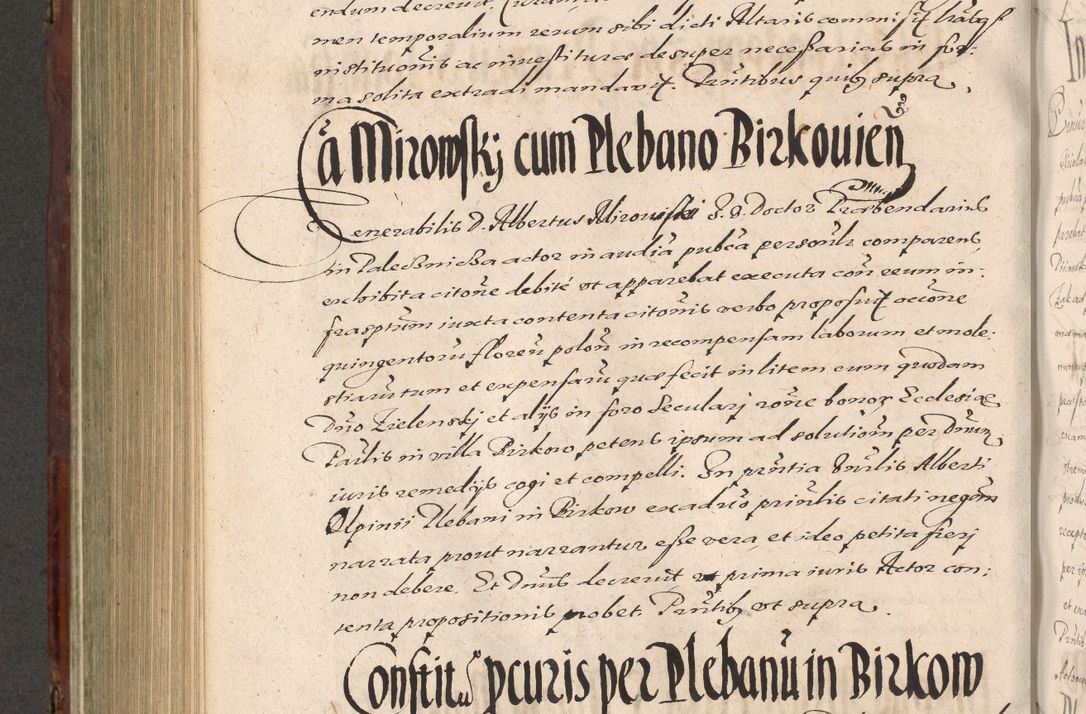 endum decrevit. Curam
men temporalium rerum sibi dicti Altaris commisit
institutionis ac investituræ desuper necessarias in for:
ma solita extradi mandavit. Pñtibus quib9 supra.
Cã Mirowskÿ cum Plebano Birkovien
Venerabilis D. Albertus Mirowski I. V. Doctor Præbendarius
in Paleczniczka actor in audiã pubca personlr comparens,
exhibita citone debite ut apparebat executa con reum in:
frasptum iuxta contenta citonis verbo proposuit occone
quingentoru floren polon in recompensam laborum et mole:
stiaru tum et expensaru quas fecit in litem cum quodam
Dno Zielenskj et alÿs in foro Secularj rone bonor Ecclesiæ
Paulis in villa Birkow petens ipsum ad solutiom per Dnum
iuris remedÿs cogi et compelli. In prntia Hnlis Alberti
Alpinii Plebani in Birkow ex adverso prinlis citati negom
narrata prout narrantur esse vera, et ideo petita fierj
non debere. Et Dnus decrevit ut prima iuris Actor con:
tenta propositionis probet. Pntib9 ut supra.
Constit9 pcuris per Plebanũ in Birkow